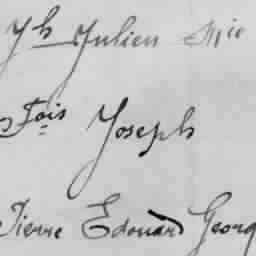 Jh Julien Mic
Fois Joseph
Pierre Edouard Georg